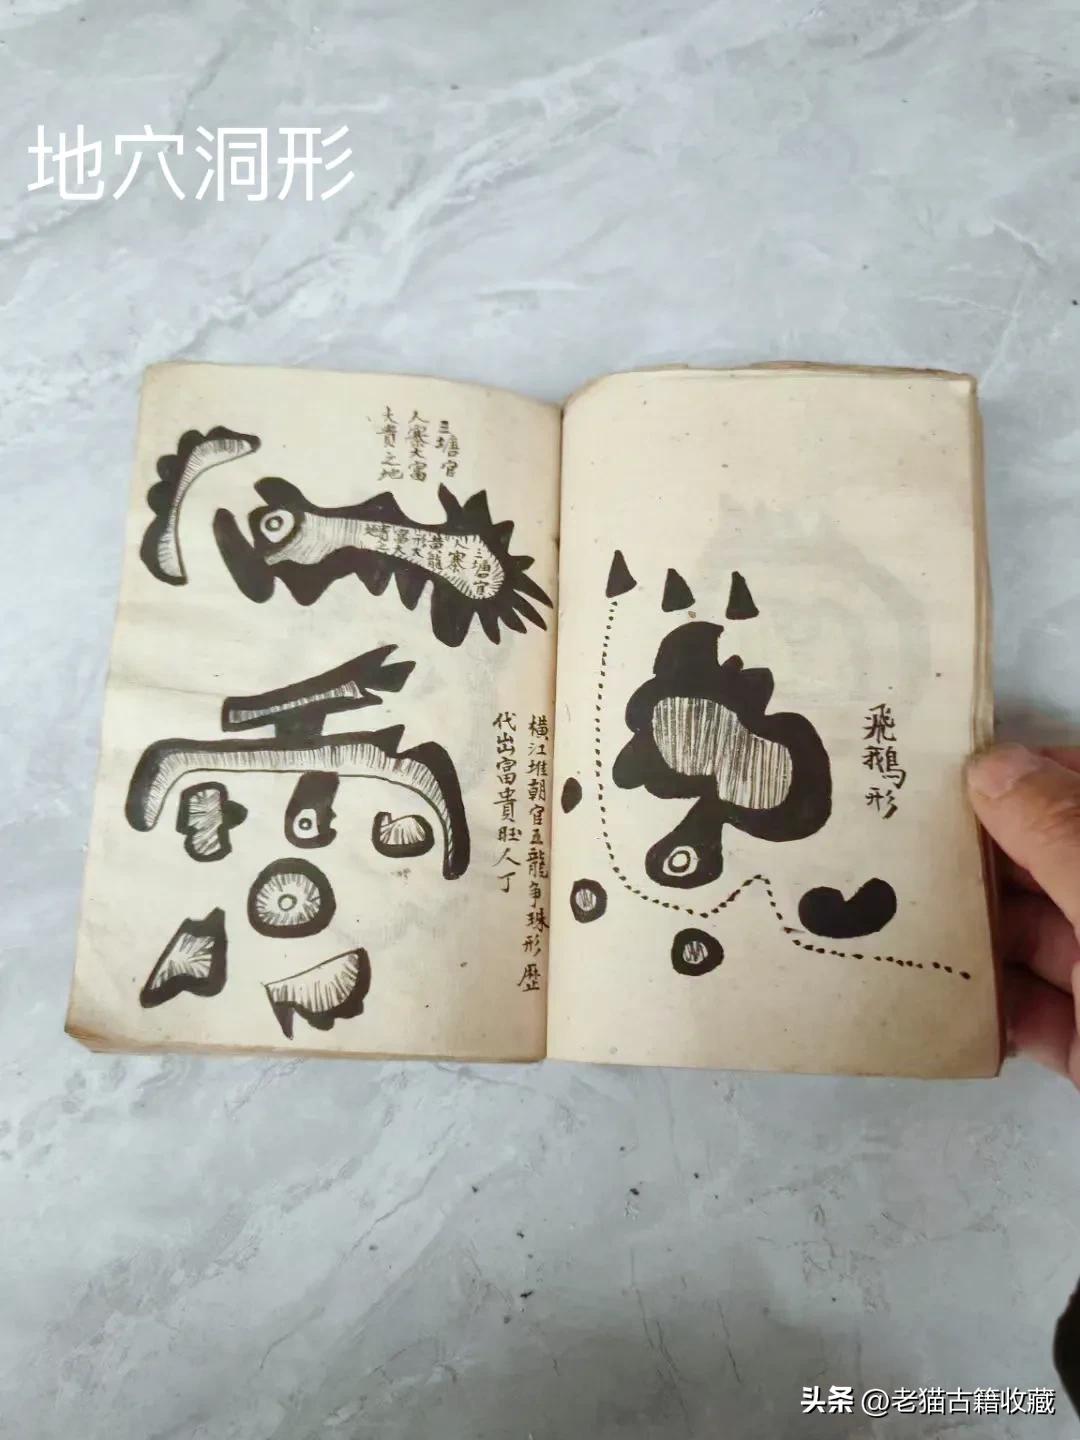 地穴洞形
三塘官
人寨大富
大貴之地
三塘官
人寨
黃龍
形大
富大
貴之
地
橫江堆朝官五龍争珠形歷
代出富貴旺人丁
飛鵝形
头条 @老猫古籍收藏